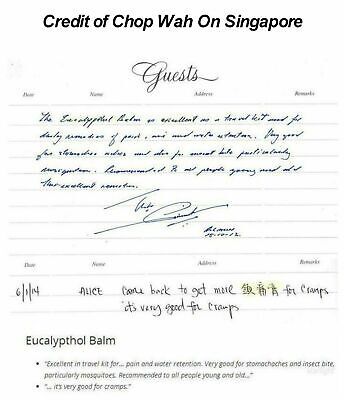 Credit of Chop Wah On Singapore
Guests
Date Name Address Remarks
The Eucalypthol Balm is excellent as a travel kit used for
daily remedies of pain, and water retention. Very good
for stomachs aches and also for insect bite particularly
mosquitoes. Recommended to all people young and old
this excellent remedies.
Date Name Address Remarks
6/1/14 ALICE Come back to get more 膏 for cramps
it's very good for cramps
Eucalypthol Balm
• "Excellent in travel kit for... pain and water retention. Very good for stomachaches and insect bite, particularly mosquitoes. Recommended to all people young and old..."
• "... it's very good for cramps."